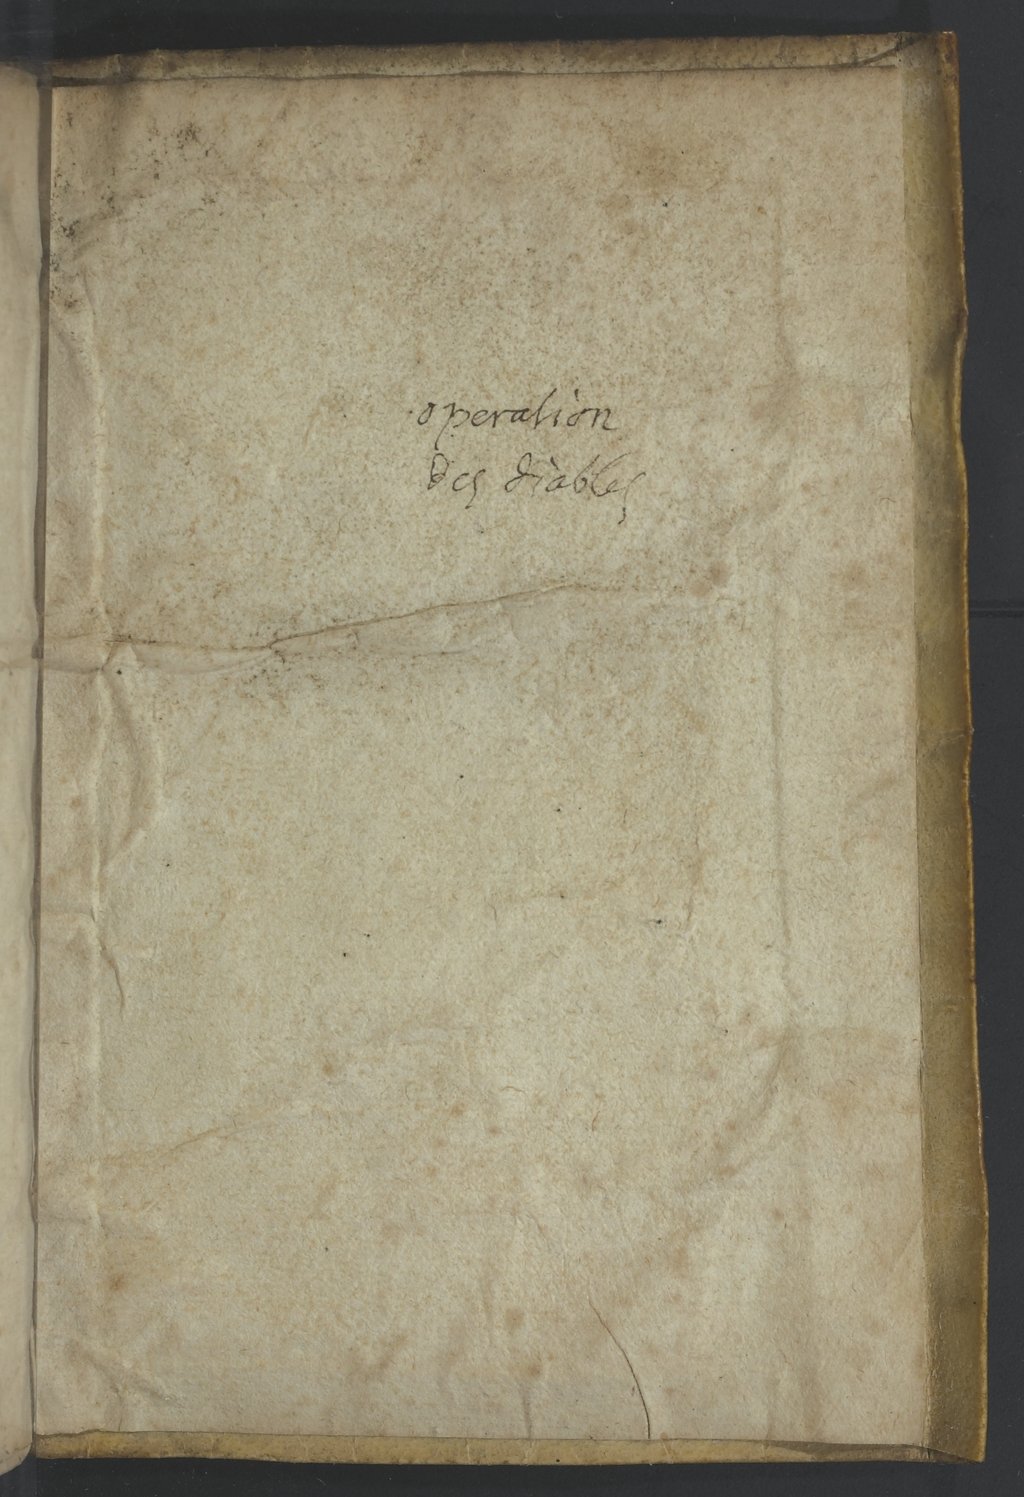 operation
des diables